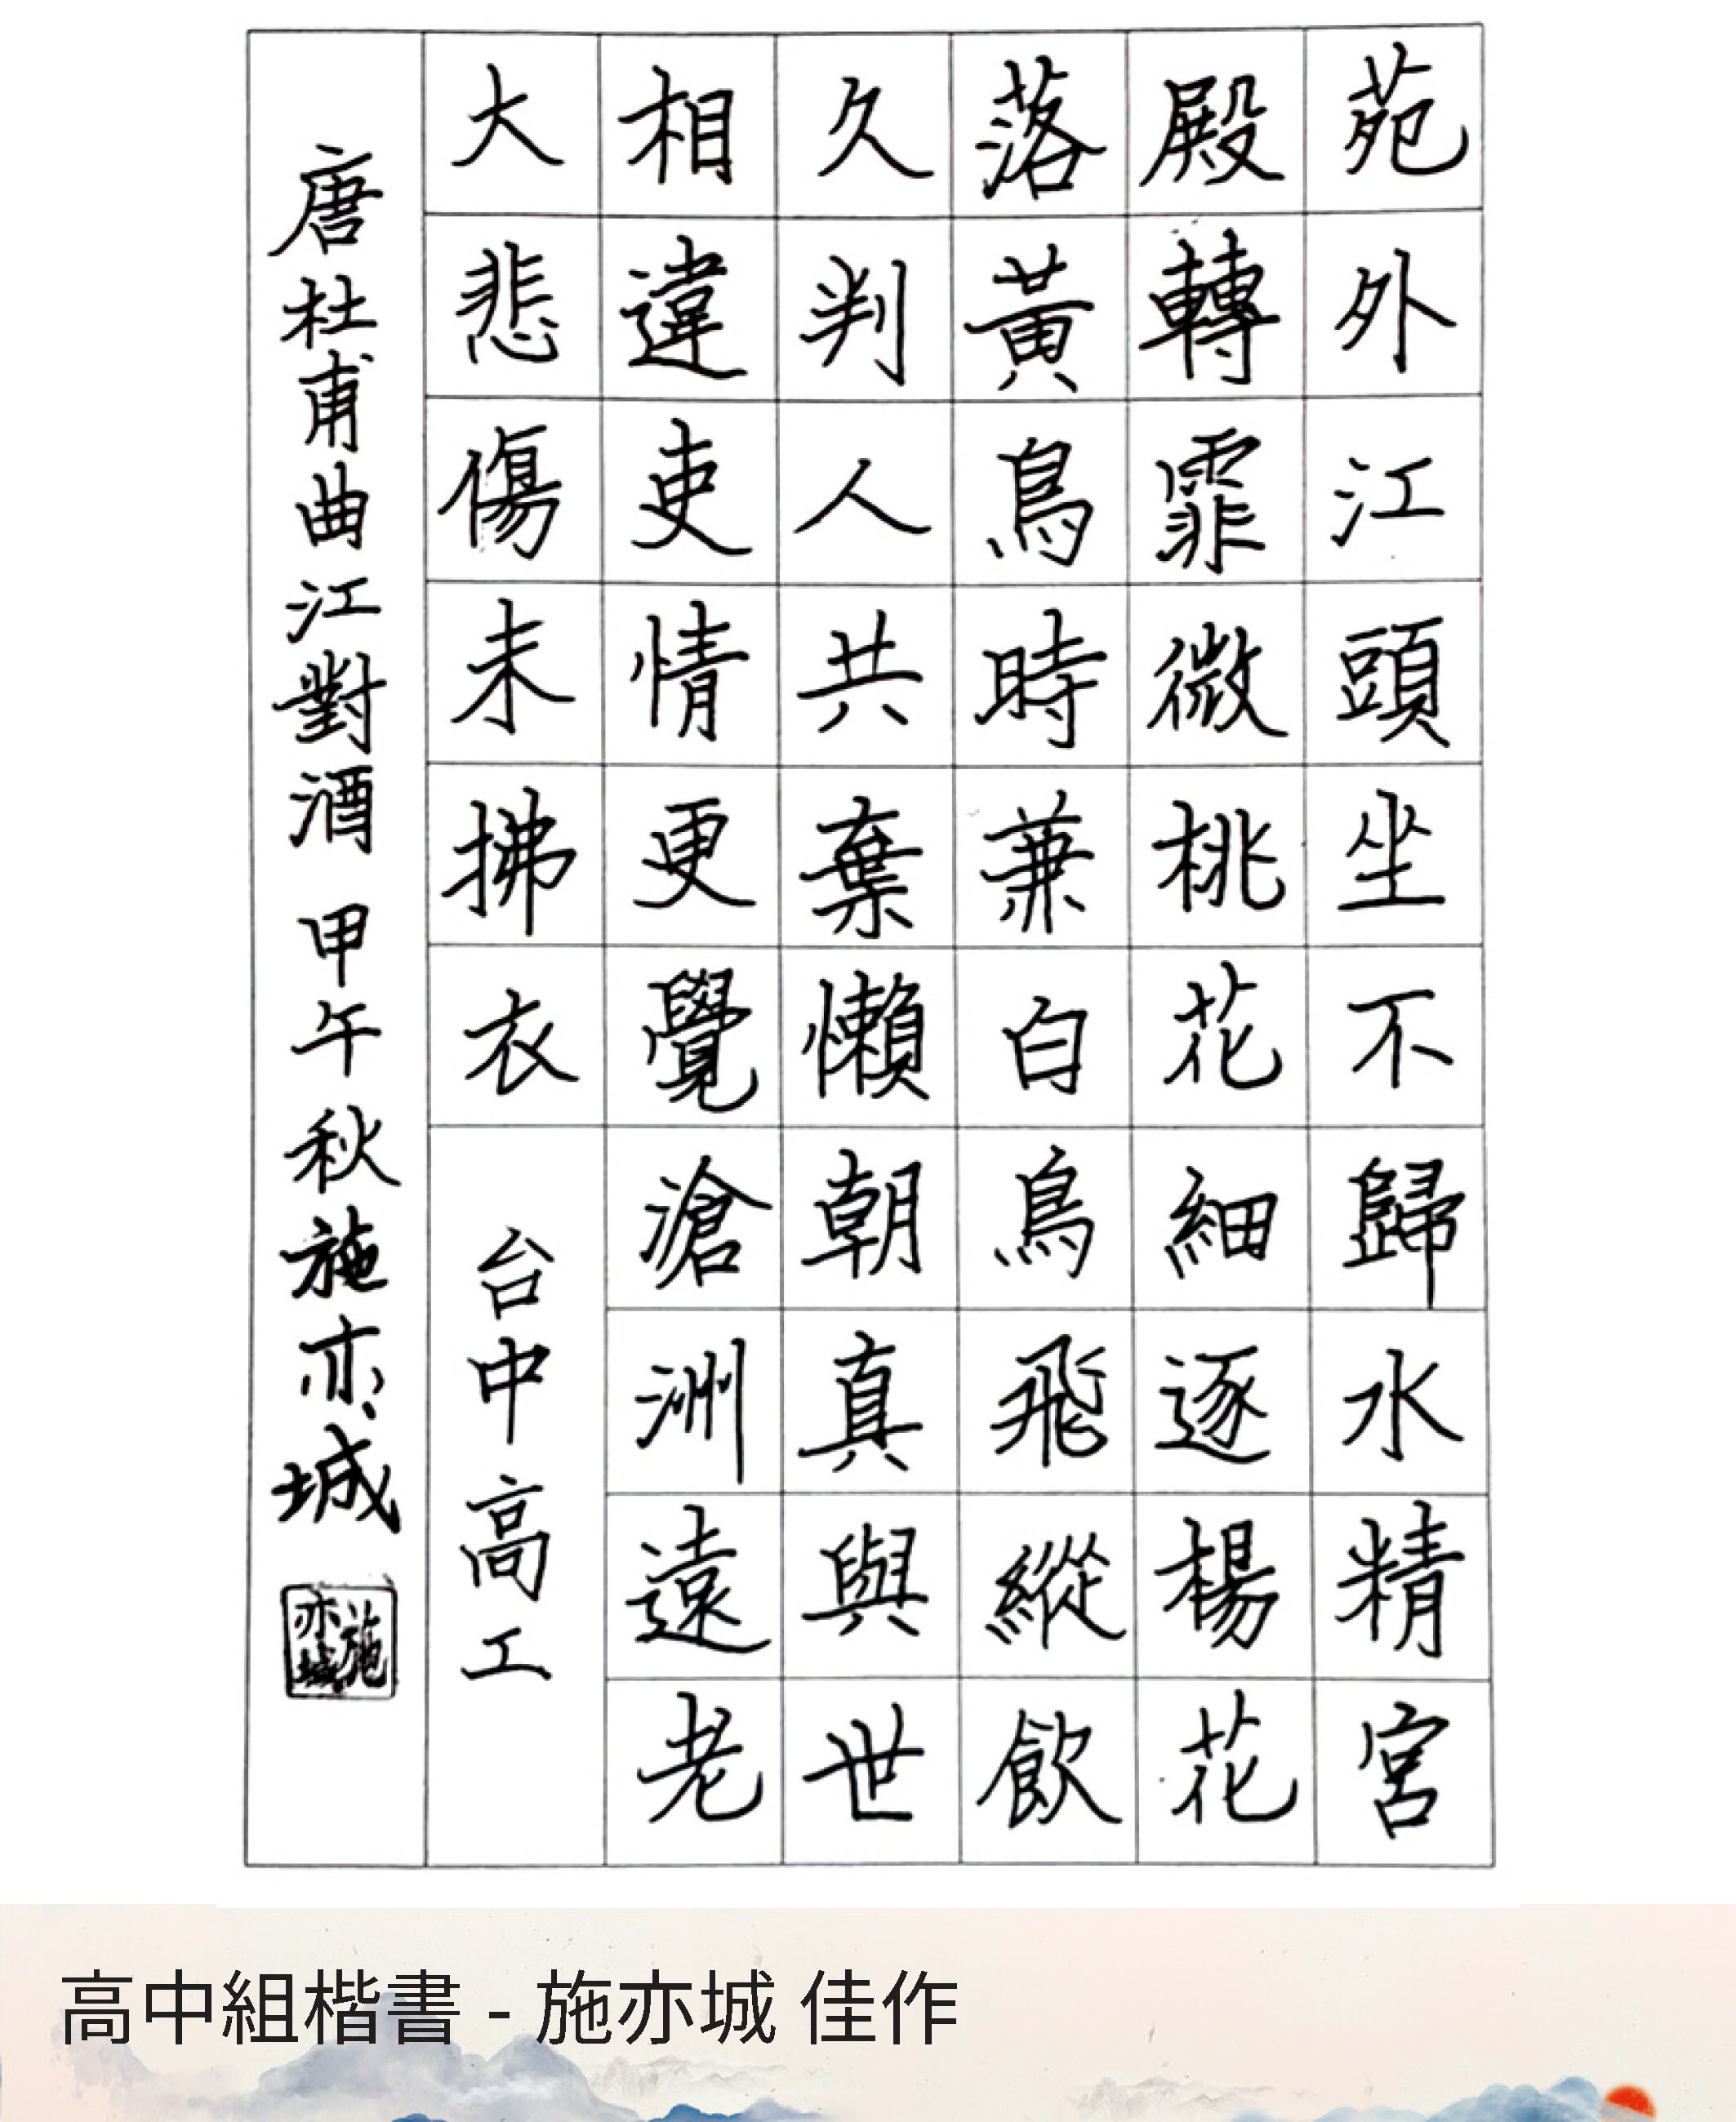 苑外江頭坐不歸水精宮
殿轉霏微桃花細逐楊花
落黃鳥時兼白鳥飛縱飲
久判人共棄懶朝真與世
相違吏情更覺滄洲遠老
大悲傷未拂衣
台中高工
唐杜甫曲江對酒 甲午秋施亦城
施亦城
高中組楷書 - 施亦城 佳作